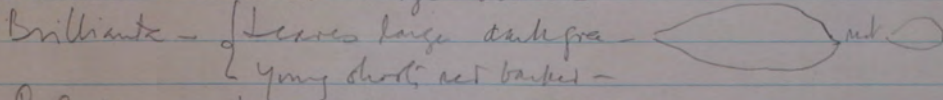 Brilliante - { Leaves large dark gre - not
young shoots not barked -